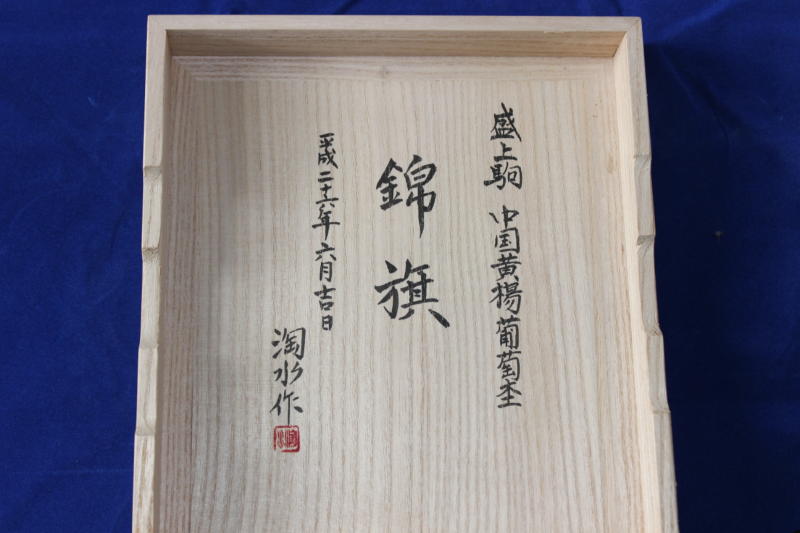 盛上駒 中国黄楊葡萄杢
錦旗
平成二十六年六月吉日
淘水作